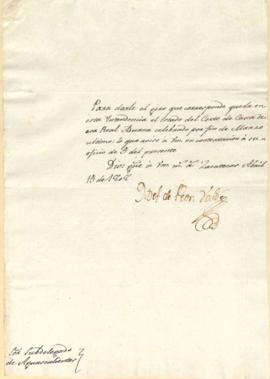 Para darle el giro que corresponde queda en
esta Yntendencia el estado del Corte de Caxa de
esa Real Aduana celebrado por fin de Marzo
ultimo: lo que aviso à Vm. en contestacion à su
oficio de 9 del presente.
Dios gũe à Vm m.s a.s Zacatecas Abril
15 de
de Peon Valdez
Sõr Subdelegado
de Aguascalientes